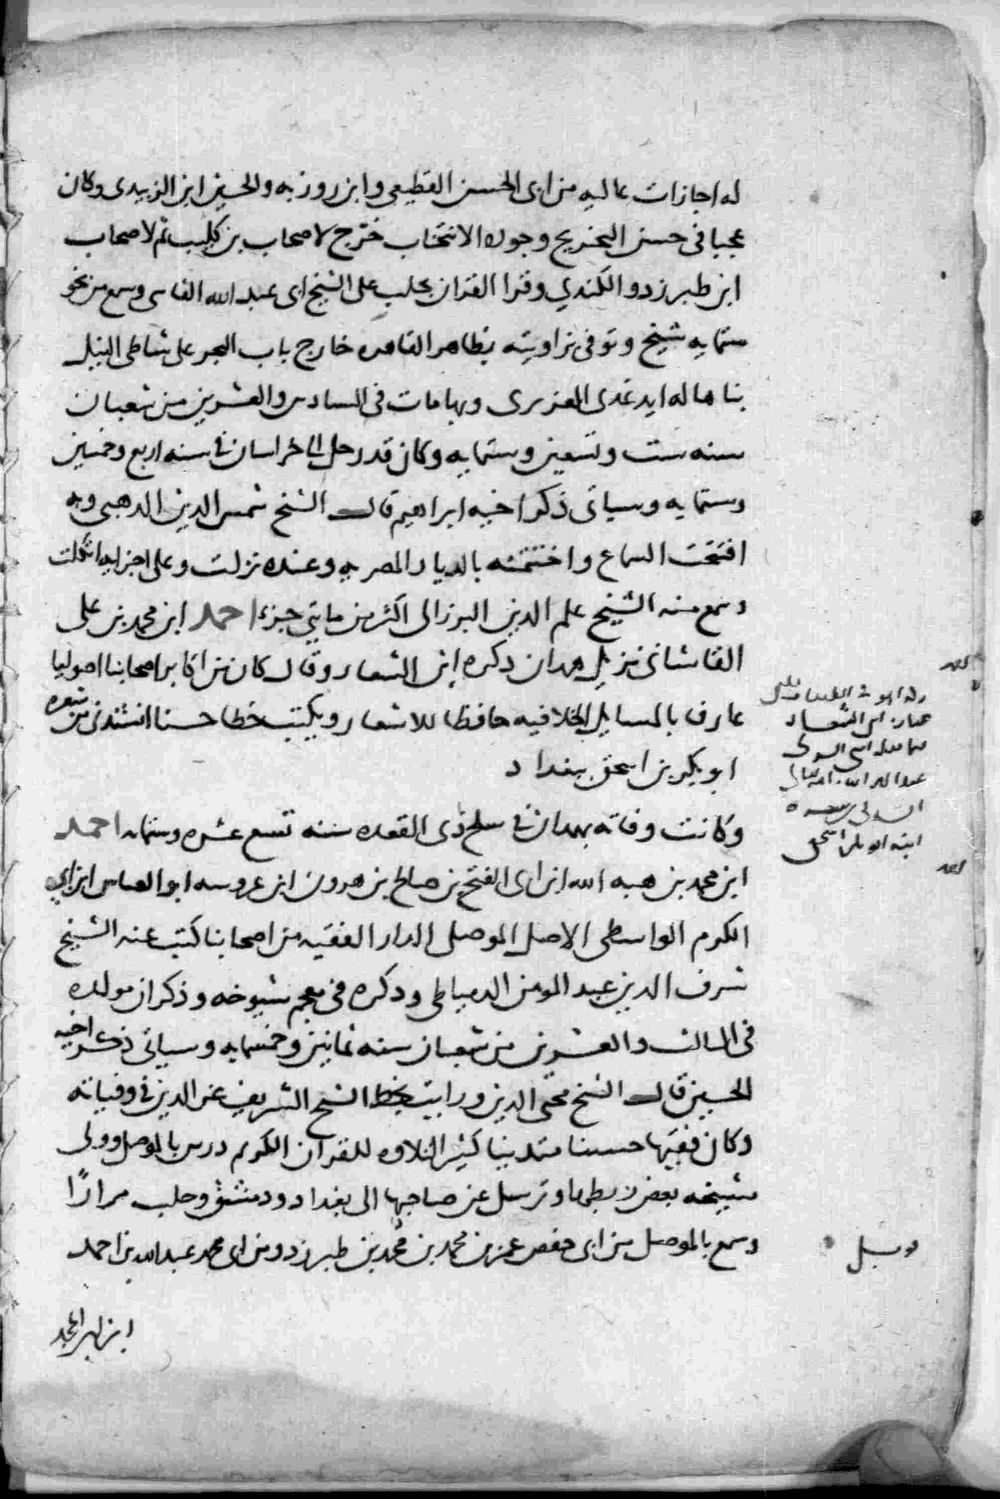 له اجازات عاليه من ابى الحسن القطيعى وابن روزبه والحسين ابن الزبيدى وكان
عجبا فى حسن التخريج وجوده الانتخاب خرّج لاصحاب بن كليب ثم لاصحاب
ابن طبرزد والكندي وقرا القران بحلب على الشيخ ابى عبد الله الفاسى وسمع من نحو
ستمايه شيخ وتوفى بزاويته بظاهر القاهره خارج باب البحر على شاطى النيل
بناها له ايدغدى العزيزى وبها مات فى السادس والعشرين من شعبان
سنه ست وتسعين وستمايه وكان قد رحل الى خراسان فى سنه اربع وخمسين
وستمايه وسياتى ذكر اخيه ابراهيم قال الشيخ شمس الدين الذهبى وبه
افتتحت السماع واختتمته بالديار المصريه وعنده نزلت وعلى اجزايه اتكلت
وسمع منه الشيخ علم الدين البرزالى اكثر من مايتى جزء احمد ابن محمد بن على
القاشانى نزيل همدان ذكره ابن الشعار وقال كان من اكابر اصحابنا اصوليا
عارفا بالمسايل الخلافيه حافظا للاشعار ويكتب خطا حسنا انشدنى من شعره
ابو بكر بن اسحق ببغداد
وكانت وفاته بهمدان فى سلخ ذى القعده سنه تسع عشره وستمايه احمد
ابن محمد بن هبه الله ابن ابى الفتح بن صالح بن هرون ابن عروسه ابو العباس ابن ابي
الكرم الواسطى الاصل الموصلى الدار الفقيه من اصحابنا كتب عنه الشيخ
شرف الدين عبد المومن الدمياطى وذكره فى معجم شيوخه وذكر ان مولده
فى الثالث والعشرين من شعبان سنه ثمانين وخمسمايه وسياتى ذكر اخيه
الحسين قال الشيخ محيى الدين ورايت بخط الشيخ الشريف عز الدين فى وفياته
وكان فقيها حسنا متدينا كثير التلاوه للقران الكريم درس بالموصل وولى
مشيخه بعض ربطها وترسل عن صاحبها الى بغداد ودمشق وحلب مرارًا
وسمع بالموصل من ابى حفص عمر بن محمد بن محمد بن طبرزد ومن ابى محمد عبد الله بن احمد
ابن ابى المجد